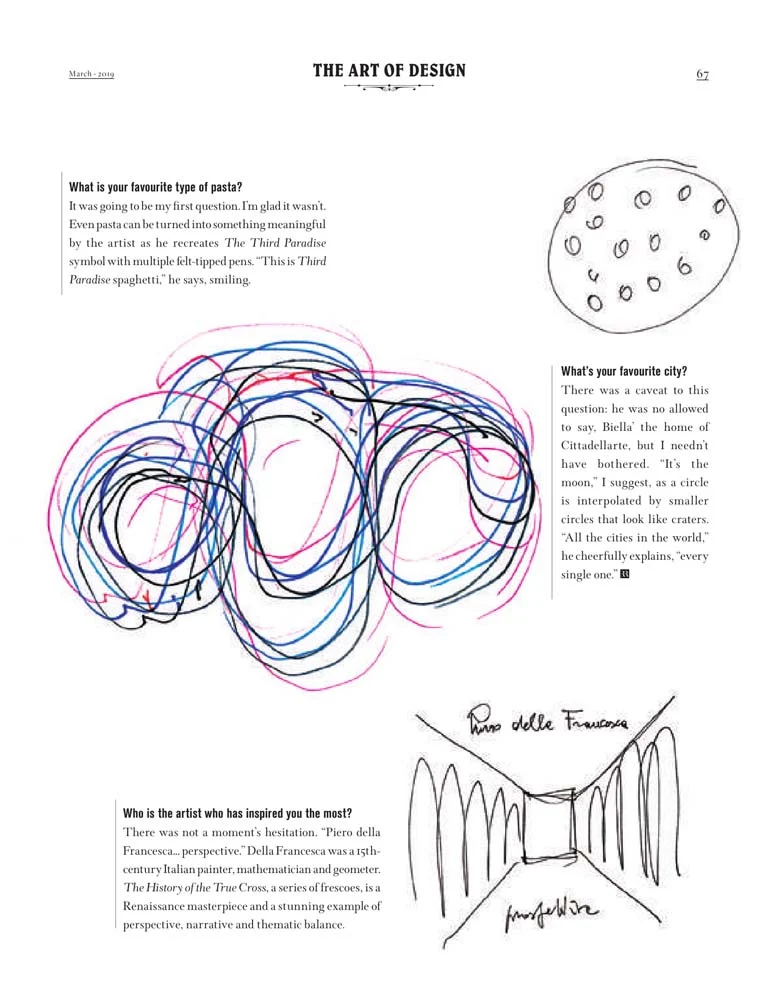 March - 2019
THE ART OF DESIGN
67
What is your favourite type of pasta?
It was going to be my first question. I'm glad it wasn't.
Even pasta can be turned into something meaningful
by the artist as he recreates The Third Paradise
symbol with multiple felt-tipped pens. “This is Third
Paradise spaghetti,” he says, smiling.
What's your favourite city?
There was a caveat to this
question: he was no allowed
to say, Biella’ the home of
Cittadellarte, but I needn't
have bothered. “It's the
moon,” I suggest, as a circle
is interpolated by smaller
circles that look like craters.
“All the cities in the world,”
he cheerfully explains, “every
single one.”
Piero della Francesca
Who is the artist who has inspired you the most?
There was not a moment's hesitation. “Piero della
Francesca... perspective.” Della Francesca was a 15th-
century Italian painter, mathematician and geometer.
The History of the True Cross, a series of frescoes, is a
Renaissance masterpiece and a stunning example of
perspective, narrative and thematic balance.